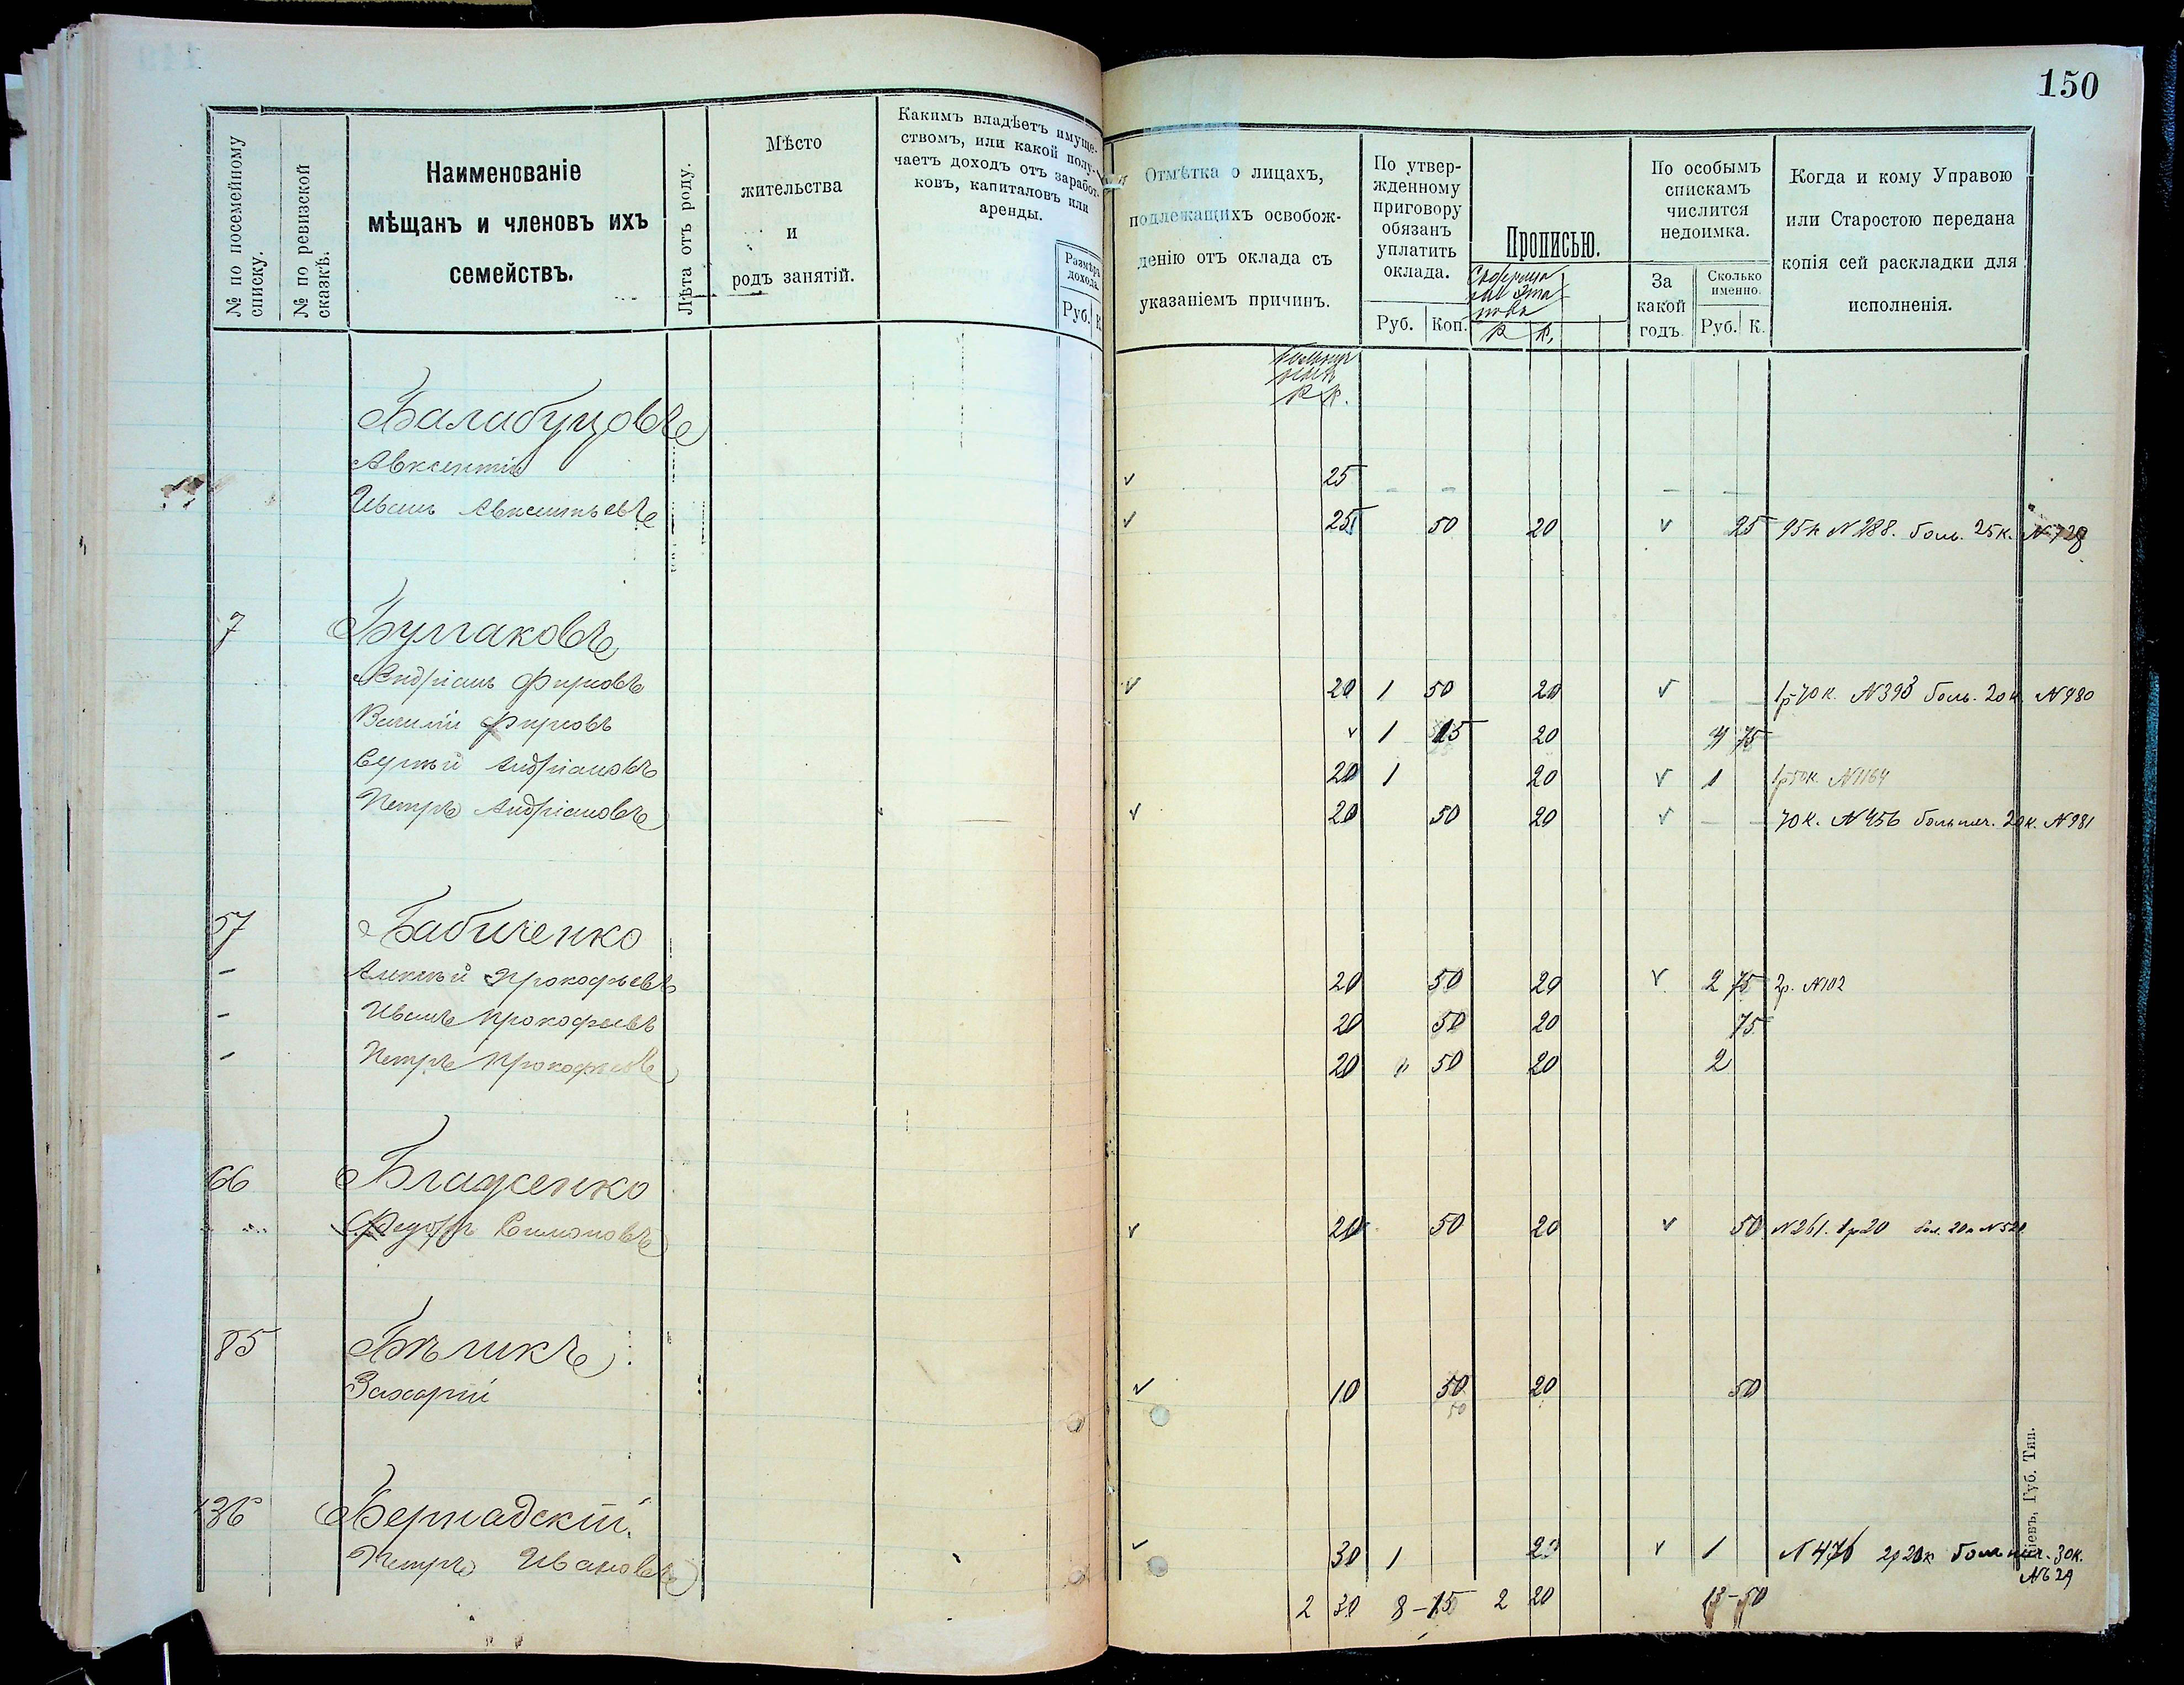 150
№ по посемейному списку.
№ по ревизской сказкѣ.
Наименованіе
мѣщанъ и членовъ ихъ
семействъ.
Лѣта отъ роду.
Мѣсто
жительства
и
родъ занятій.
Какимъ владѣетъ имуще-
ствомъ, или какой полу-
чаетъ доходъ отъ заработ-
ковъ, капиталовъ или
аренды.
Размѣръ дохода.
Руб. К.
Отмѣтка о лицахъ,
подлежащихъ освобож-
денію отъ оклада съ
указаніемъ причинъ.
По утвер-
жденному
приговору
обязанъ
уплатить
оклада.
Руб. Коп.
Прописью.
Р К.
По особымъ
спискамъ
числится
недоимка.
За
какой
годъ.
Сколько
именно.
Руб. К.
Когда и кому Управою
или Старостою передана
копія сей раскладки для
исполненія.
Р К.
Балабуцовъ
Авксентій 25 - - - -
Иванъ Авксентьевъ 25 50 20 25 95к N 288. боль. 25к. N 728
7 Булгаковъ
Андріанъ Фирсовъ 20 1 50 20 1р70к. N 393 боль. 20к. N 980
Василій Фирсовъ 1 15 20 75
Сергѣй Андріановъ 20 1 20 1 N 1164
Петръ Андріановъ 20 50 20 - - 70к. N 456 больнич. 20к. N 981
57 Бабиченко
- Алексѣй Прокофьевъ 20 50 20 2 75 2р. N 102
- Иванъ Прокофьевъ 20 50 20 75
- Петръ Прокофьевъ 20 " 50 20 2
66 Блаженко
Федоръ Симоновъ 20 50 20 50 N 261. 1р20 бол. 20к N 520
85 Бѣликъ
Захарій 10 50 20 50
50
136 Бернадскій.
Петръ Ивановъ 30 1 20 1 N 476 2р20к больнич. 30к.
2 30 8-15 2 20 13-50
Кіевъ, Губ. Тип.